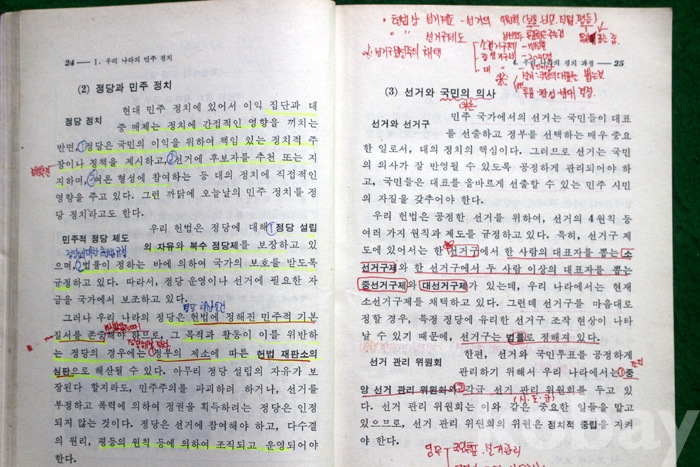 24 — 1. 우리 나라의 민주 정치
(2) 정당과 민주 정치
정당 정치
현대 민주 정치에 있어서 이익 집단과 대
중 매체는 정치에 간접적인 영향을 끼치는
반면, ①정당은 국민의 이익을 위하여 책임 있는 정치적 주
장이나 정책을 제시하고, ②선거에 후보자를 추천 또는 지
지하며, ③여론 형성에 참여하는 등 대의 정치에 직접적인
영향을 주고 있다. 그런 까닭에 오늘날의 민주 정치를 정
당 정치라고도 한다.
민주적 정당 제도
우리 헌법은 정당에 대해 ①정당 설립
의 자유와 복수 정당제를 보장하고 있
으며, ②법률이 정하는 바에 의하여 국가의 보호를 받도록
규정하고 있다. 따라서, 정당 운영이나 선거에 필요한 자
금을 국가에서 보조하고 있다.
그러나 우리 나라의 정당은 헌법에 정해진 민주적 기본
질서를 존중해야 하므로, 그 목적과 활동이 이를 위반하
는 정당의 경우에는 정부의 제소에 따른 헌법 재판소의
심판으로 해산될 수 있다. 아무리 정당 설립의 자유가 보
장된다 할지라도, 민주주의를 파괴하려 하거나, 선거를
부정하고 폭력에 의하여 정권을 획득하려는 정당은 인정
되지 않는 것이다. 정당은 선거에 참여해야 하고, 다수결
의 원리, 평등의 원칙 등에 의하여 조직되고 운영되어야
한다.
헌법상 선거제도 - 선거의
선거구제도
소선거구제
중선거구제
대
4. 우리 나라의 정치 과정 — 25
(3) 선거와 국민의 의사
선거와 선거구
민주 국가에서의 선거는 국민들이 대표
를 선출하고 정부를 선택하는 매우 중요
한 일로서, 대의 정치의 핵심이다. 그러므로 선거는 국민
의 의사가 잘 반영될 수 있도록 공정하게 관리되어야 하
고, 국민들은 대표를 올바르게 선출할 수 있는 민주 시민
의 자질을 갖추어야 한다.
우리 헌법은 공정한 선거를 위하여, 선거의 4원칙 등
여러 가지 원칙과 제도를 규정하고 있다. 특히, 선거구 제
도에 있어서는 한 선거구에서 한 사람의 대표자를 뽑는 소
선거구제와 한 선거구에서 두 사람 이상의 대표자를 뽑는
중선거구제와 대선거구제가 있는데, 우리 나라에서는 현재
소선거구제를 채택하고 있다. 그런데 선거구를 마음대로
정할 경우, 특정 정당에 유리한 선거구 조작 현상이 나타
날 수 있기 때문에, 선거구는 법률로 정해져 있다.
선거 관리 위원회
한편, 선거와 국민투표를 공정하게
관리하기 위해서 우리 나라에서는 ①중
앙 선거 관리 위원회와 ②각급 선거 관리 위원회를 두고 있
다. 선거 관리 위원회는 이와 같은 중요한 일들을 맡고
있으므로, 선거 관리 위원회의 위원은 정치적 중립을 지켜
야 한다.